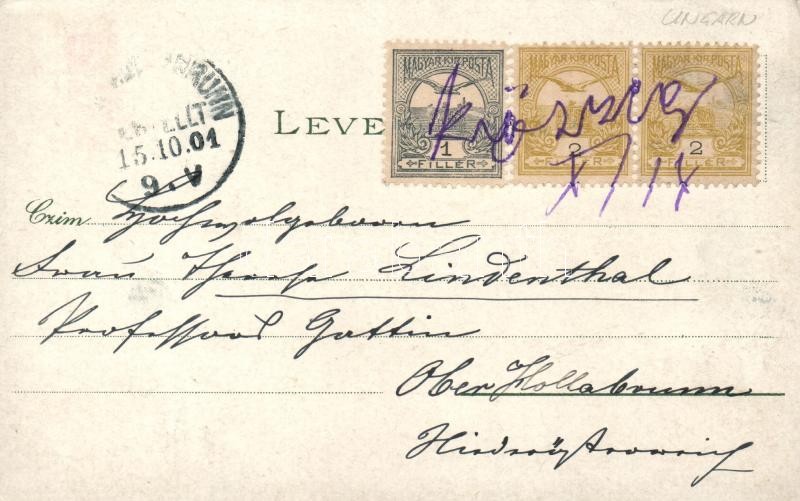 UNGARN
MAGYAR KIR. POSTA MAGYAR KIR. POSTA MAGYAR KIR. POSTA
1 2 2
FILLÉR FILLÉR FILLÉR
X/14
BRUNN
BESTELLT
15.10.01
9.V
LEVE
Czim Hochwolgeboren
Frau Therese Lindenthal
Professors Gattin
Ober Hollabrunn
Niederösterreich